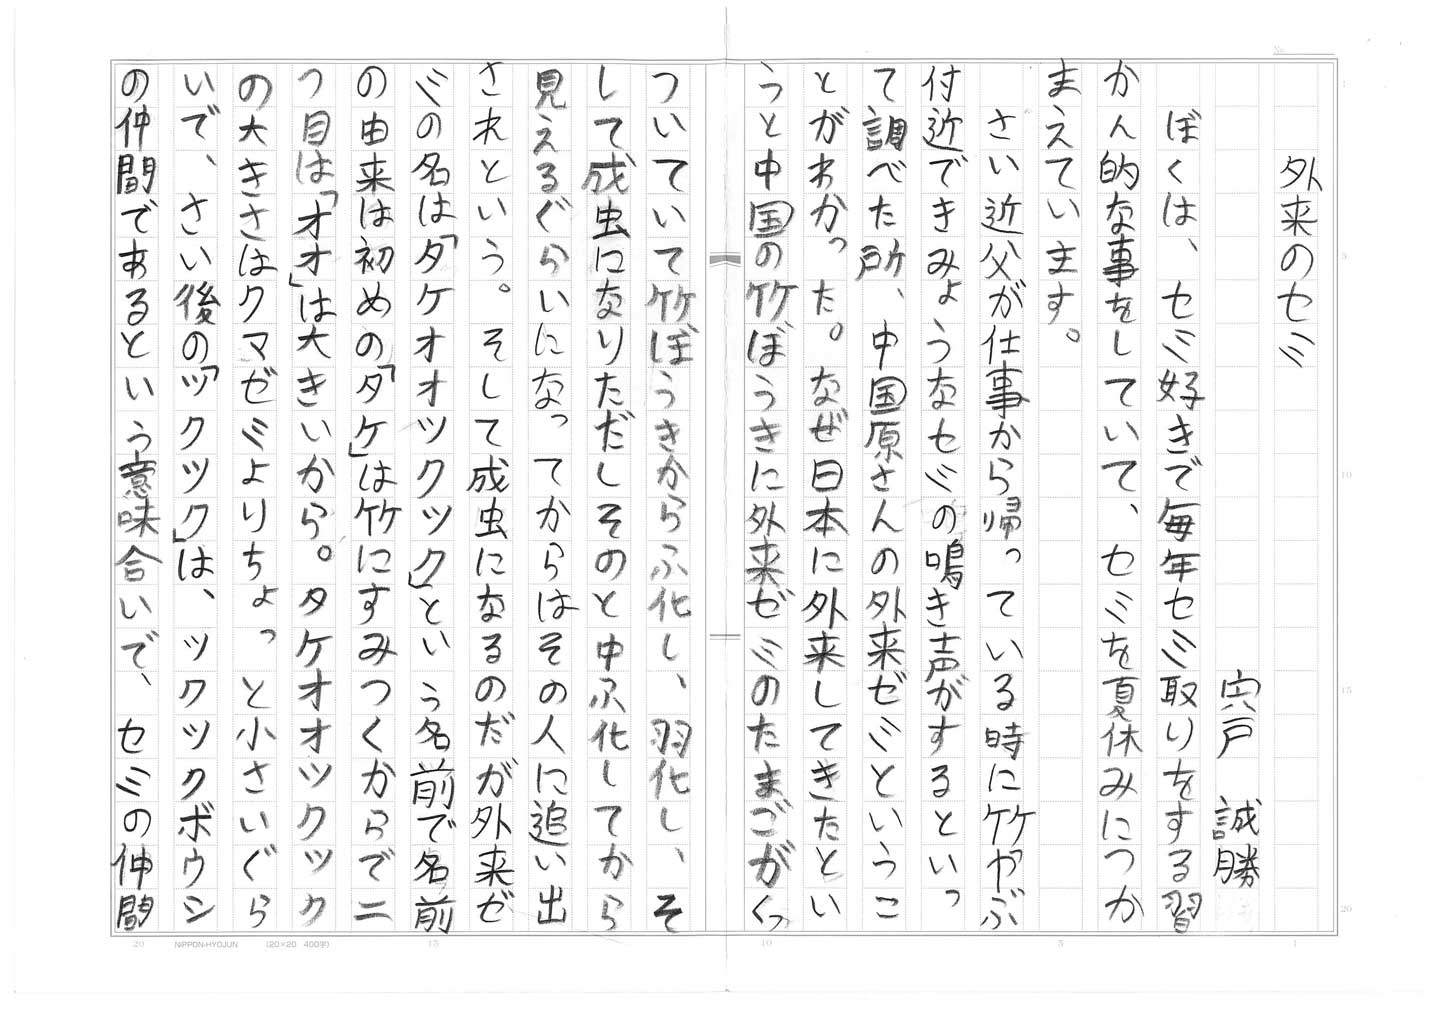 外来のセミ
宍戸 誠勝
ぼくは、セミ好きで毎年セミ取りをする習
かん的な事をしていて、セミを夏休みにつか
まえています。
さい近父が仕事から帰っている時に竹やぶ
付近できみょうなセミの鳴き声がするといっ
て調べた所、中国原さんの外来ゼミというこ
とがわかった。なぜ日本に外来してきたとい
うと中国の竹ぼうきに外来ゼミのたまごがくっ
ついていて竹ぼうきからふ化し、羽化し、そ
して成虫になりただしそのと中ふ化してから
見えるぐらいになってからはその人に追い出
されという。そして成虫になるのだが外来ゼ
ミの名は「タケオオツクツク」という名前で名前
の由来は初めの「タケ」は竹にすみつくからで二
つ目は「オオ」は大きいから。タケオオツクツク
の大きさはクマゼミよりちょっと小さいぐら
いで、さい後の「ツクツク」は、ツクツクボウシ
の仲間であるという意味合いで、セミの仲間
No.
1
5
10
15
20
1
5
10
15
20
NIPPON-HYOJUN (20×20 400字)